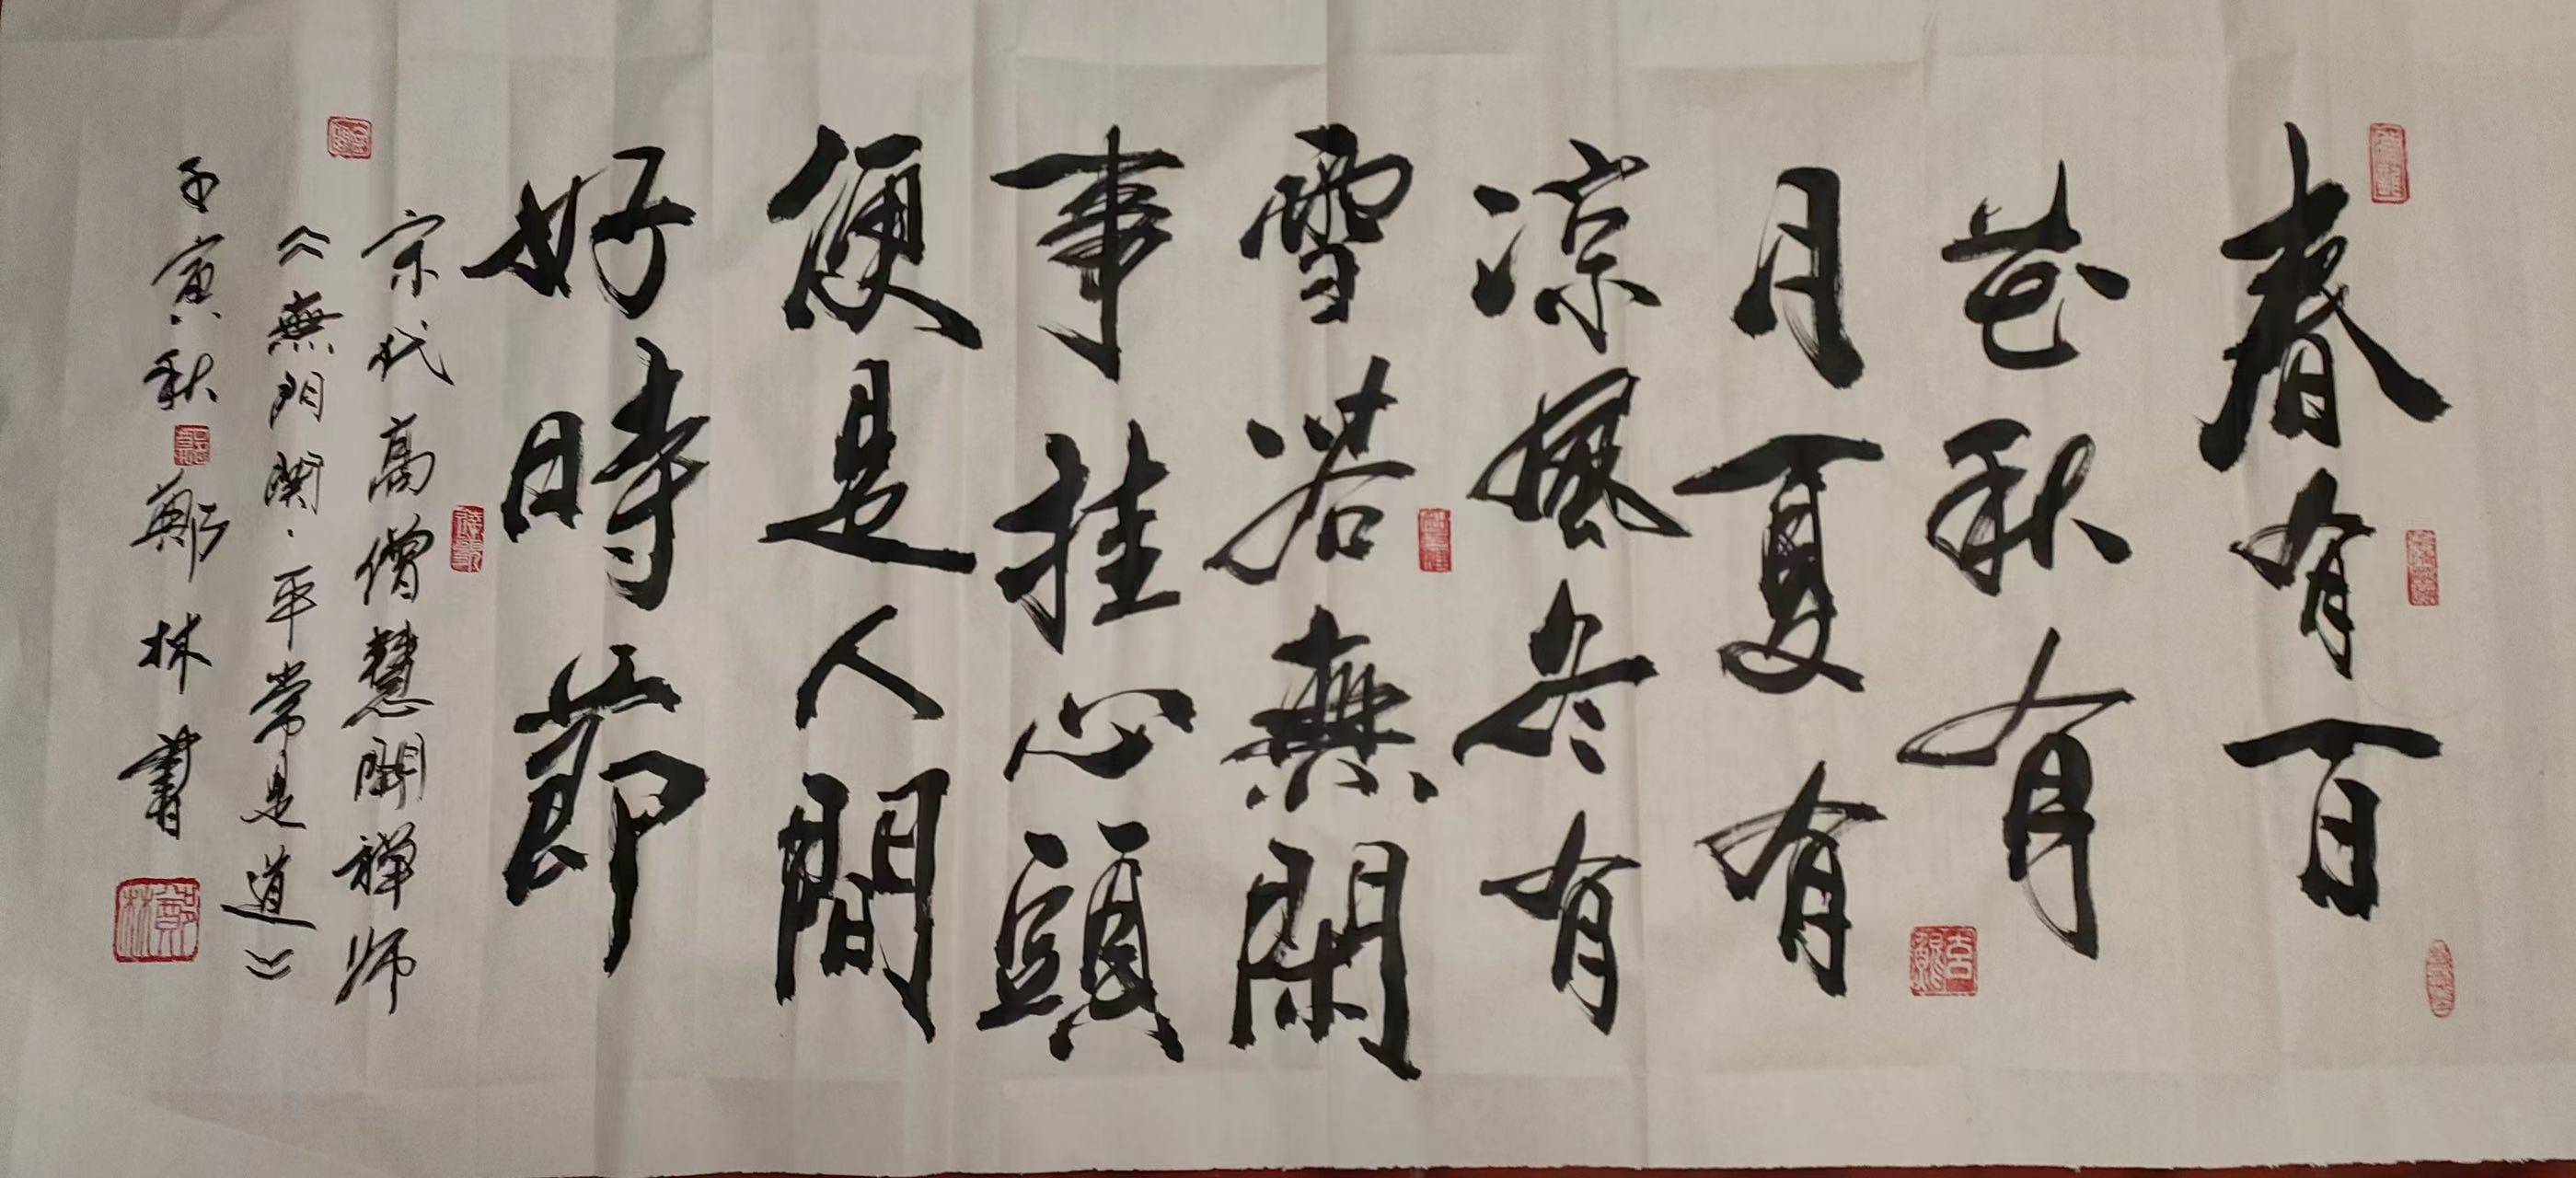 春有百
花秋有
月夏有
涼風冬有
雪若無閑
事挂心頭
便是人間
好時節
宗代高僧慧開禅师
《無門関·平常是道》
壬寅秋鄭林書
鄭林